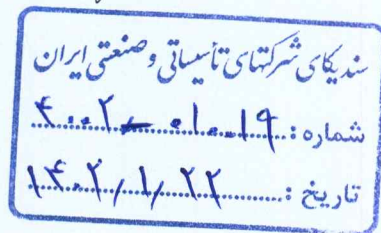 سندیکای شرکتهای تأسیساتی و صنعتی ایران
شماره : ۴۰۰۲-۰۱۰۰۱۹
تاریخ : ۱۴۰۲/۱/۲۲